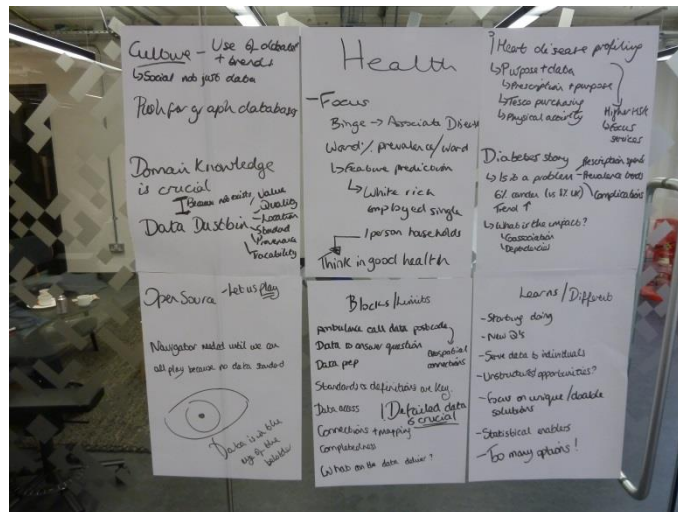 Culture – Use of databases
+ trends
↳Social not just data
graph database
Domain Knowledge
is crucial
Value
Quality
Data Dustbin
Location
Standard
Provenance
Tracability
Health
–Focus
Binge → Associate Disease
Ward: % prevalence/ward
↳Feature prediction
↳White rich
employed single
1 person households
Think in good health
Heart disease profiling
↳Purpose + data
↳Prescription + purpose
↳Tesco purchasing
↳Physical activity
Higher risk
↳Focus
services
Diabetes story
Prescription spends
↳Is it a problem
Prevalence trends
Complications
Trend ↑
↳What is the impact?
Open Source – Let us play
Navigator needed until we can
all play because no data standard
Data is in the
eye of the
beholder
Blocks/Limits
Ambulance call data postcode
Data to answer question
Data prep
Geospatial
connections
Standards + definitions are key.
Data access
Detailed data
is crucial
Connections + mapping
Completedness
What can the data deliver?
Learns/Different
- Starting doing
- New D's
- Serve data to individuals
- Unstructured opportunities?
- Focus on unique/doable
solutions
- Statistical enablers
- Too many options!